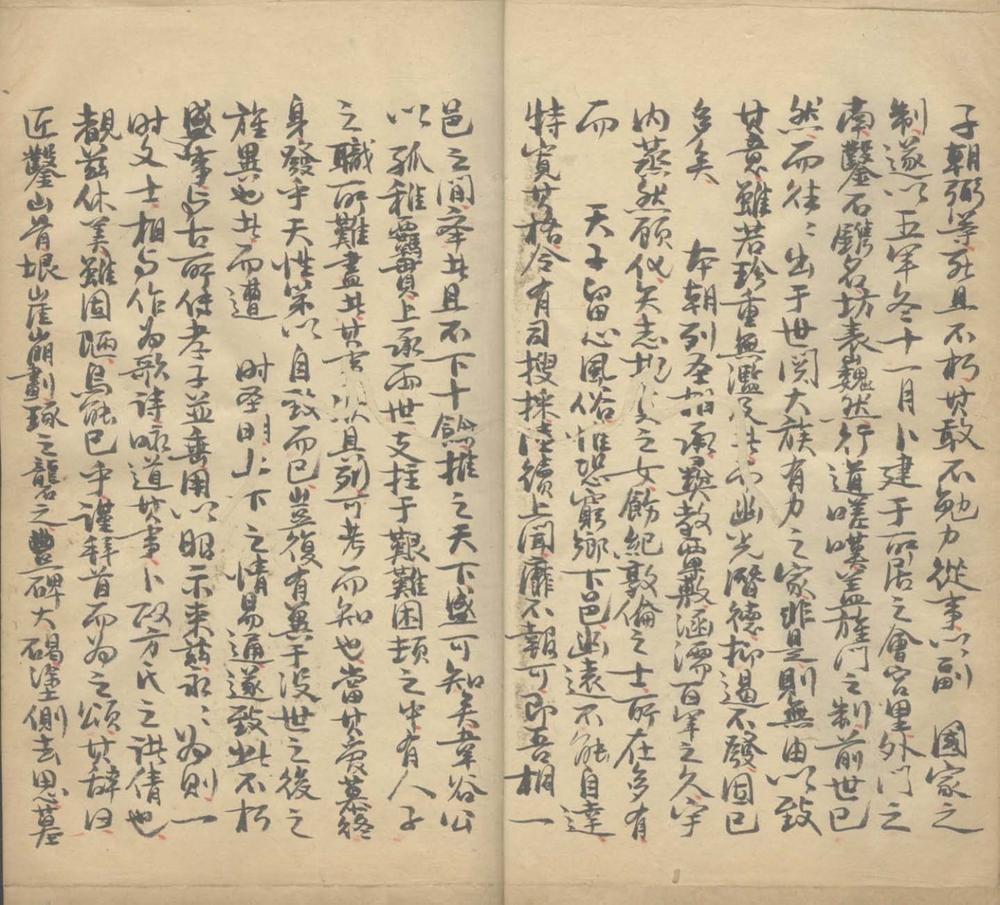 子朝弼等死且不朽其敢不勉力從事以副　國家之
制遂以五年冬十一月卜建于所居之會宮里外門之
南鑿石鐫名坊表巍然行道嗟嘆蓋旌門之制前世已
然而往〻出于世閥大族有力之家非是則無由以致
其意雖若珍重無濫又其而幽光潛德抑遏不發固已
多矣　本朝列聖相承敷教四裔涵濡百年之久宇
內蒸然顧化矣志之女飭紀敦倫之士所在多有
而　天子留心風俗惟恐窮鄉下邑幽遠不能自達
特寬其格令有司搜採陸續上聞靡不報可即吾桐一
邑之間率其且不下十餘推之天下盛可知矣韋谷公
以孤稚上承兩世支拄于艱難困頓之中有人子
之職所難盡其具列可考而知也當其
身發乎天性第以自致而已豈復有冀于沒世之後之
旌異也其而遭　時聖明上下之情易通遂致此不朽
盛事與古所傳孝子並垂用以昭示來茲永〻為則一
時文士相與作為歌詩咏道其事卜改方氏之洪倩也
覩茲休美雖固陋烏能已乎謹拜首而為之頌其辭曰
匠鑿山骨垠崖崩劃琢之礱之豐碑大碣塗側去思墓